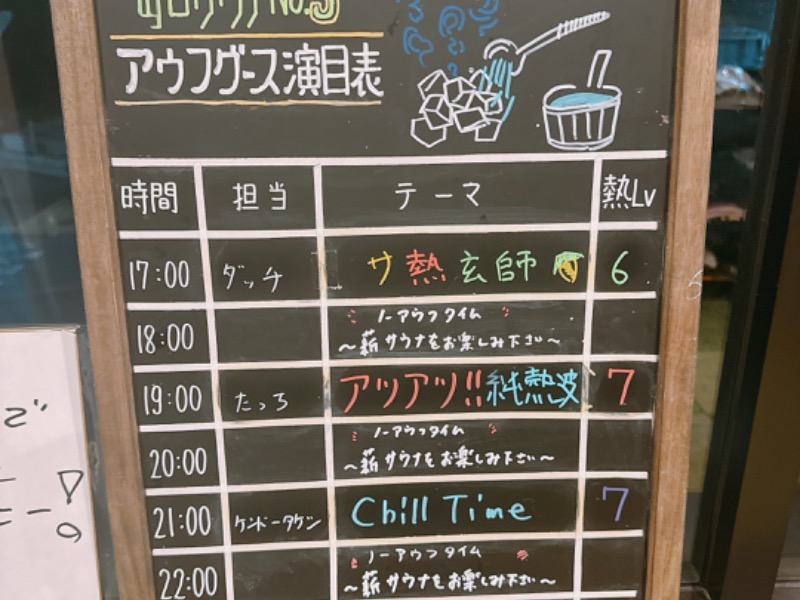 アウフグース演目表
時間 担当 テーマ 熱Lv
17:00 ダッチ サ熱玄師 6
18:00 ノーアウフタイム
～薪サウナをお楽しみ下さい～
19:00 たっろ アツアツ!!純熱波 7
20:00 ノーアウフタイム
～薪サウナをお楽しみ下さい～
21:00 ケンドータケシ Chill Time 7
22:00 ノーアウフタイム
～薪サウナをお楽しみ下さい～